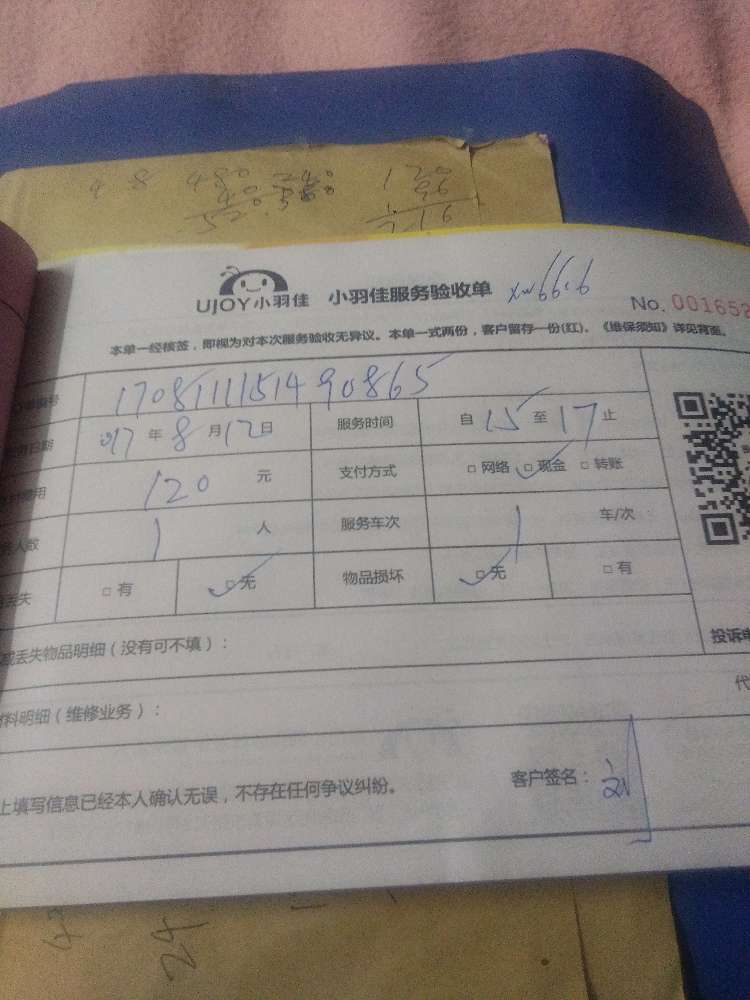 9 8 480 240 120
40 96
520 216
UJOY小羽佳 小羽佳服务验收单
No. 001652
本单一经核签，即视为对本次服务验收无异议。本单一式两份，客户留存一份(红)，《维保须知》详见背面。
编号 1708111151490865
日期 2017年8月12日 服务时间 自15至17止
费用 120元 支付方式 □网络 ☑现金 □转账
人数 1人 服务车次 1车/次
丢失 □有 ☑无 物品损坏 ☑无 □有
或丢失物品明细（没有可不填）：
投诉电
材料明细（维修业务）：
代
上填写信息已经本人确认无误，不存在任何争议纠纷。 客户签名：刘
24